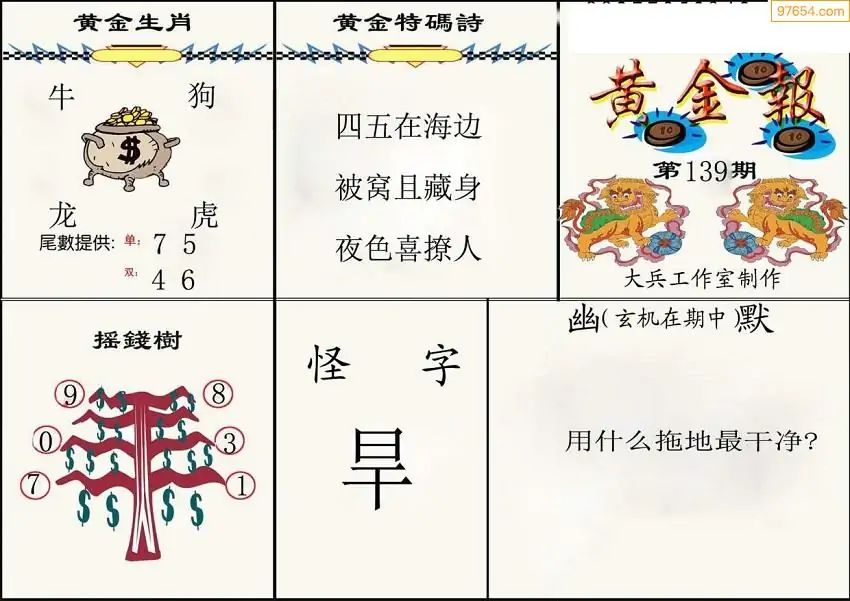 97654.com
黄金生肖
牛 狗
$
龙 虎
尾數提供: 单: 7 5
双: 4 6
黄金特碼詩
四五在海边
被窝且藏身
夜色喜撩人
黄金報
10
10
10
第139期
大兵工作室制作
摇錢樹
9 8
0 3
7 1
怪 字
旱
幽(玄机在期中)默
用什么拖地最干净?